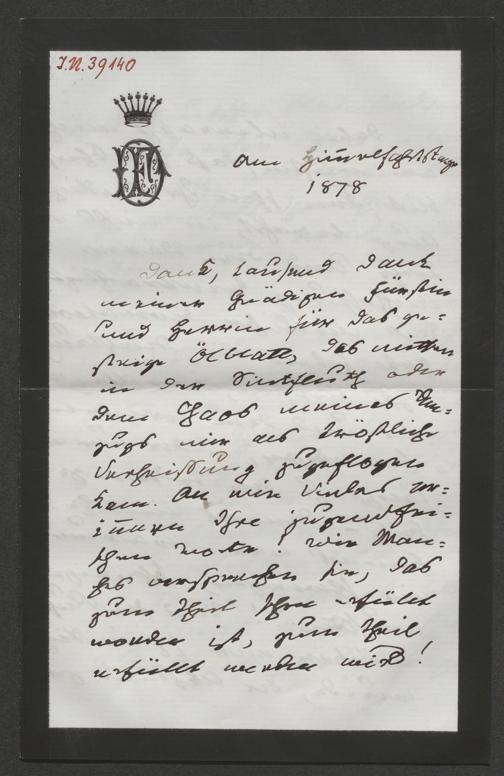 J.N. 39140
Am Himmelfahrtstage
1878
Dank, tausend Dank
meiner Gnädigen Fürstin
und Herrin für das ge-
strige Ölblatt, das mitten
in der Sintfluth oder
dem Chaos meines Um-
zugs mir als tröstliche
Verheißung zugeflogen
kam. An wie Vieles er-
innern Ihre jugendfri-
schen Worte! Wie Man-
ches versprechen sie, das
zum Theil schon erfüllt
worden ist, zum Theil
erfüllt werden wird!